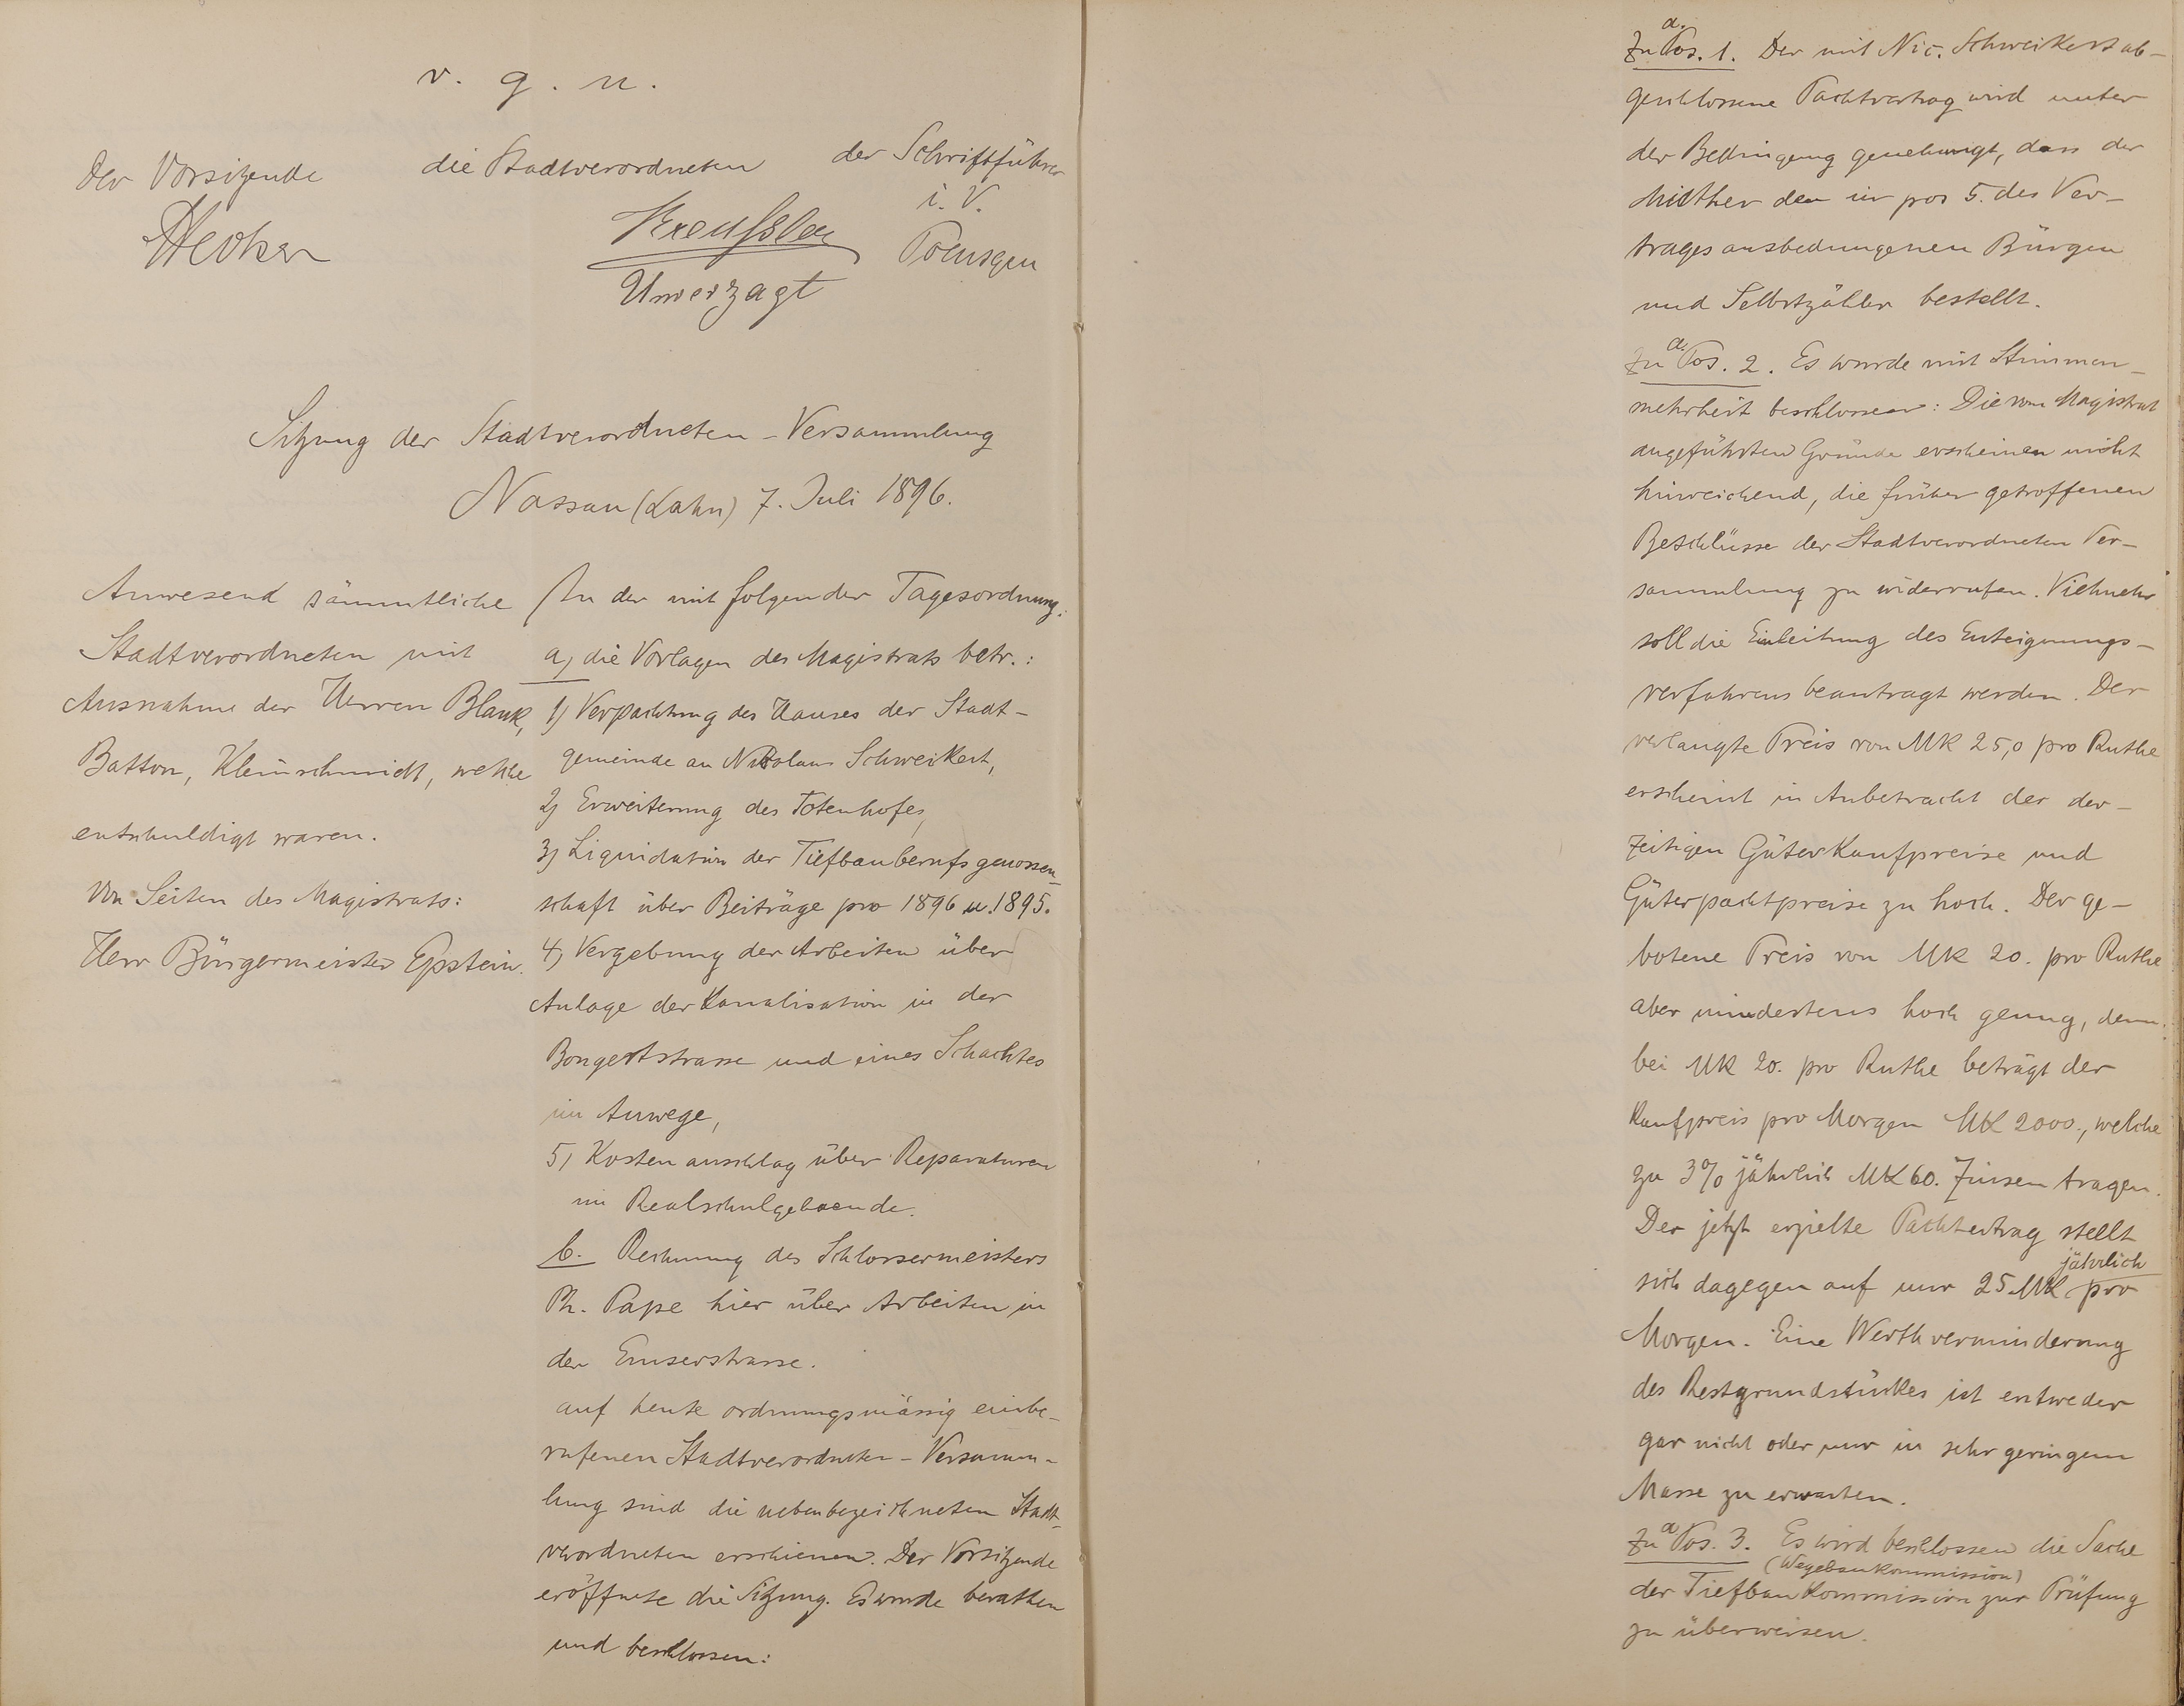 v. g. u.
Der Vorsitzende
die Stadtverordneten
der Schriftführer
i. V.
Unverzagt
Sitzung der Stadtverordneten-Versammlung
Nassau (Lahn) 7. Juli 1896.
Anwesend sämmtliche
Stadtverordneten mit
Ausnahme der Herren Blank,
Batton, Kleinschmidt, welche
entschuldigt waren.
Von Seiten des Magistrats:
Herr Bürgermeister Epstein.
In der mit folgender Tagesordnung:
a, die Vorlagen des Magistrats betr.:
1) Verpachtung des Hauses der Stadt-
gemeinde an Nikolaus Schweikert,
2) Erweiterung des Totenhofes,
3) Liquidation der Tiefbauberufsgenossen-
schaft über Beiträge pro 1896 u. 1895.
4) Vergebung der Arbeiten über
Anlage der Kanalisation in der
Bongertstrasse und eines Schachtes
im Auwege,
5) Kostenanschlag über Reparaturen
im Realschulgebaeude.
b. Rechnung des Schlossermeisters
Ph. Pape hier über Arbeiten in
der Emserstrasse.
auf heute ordnungsmässig einbe-
rufenen Stadtverordneten-Versamm-
lung sind die nebenbezeichneten Stadt-
verordneten erschienen. Der Vorsitzende
eröffnete die Sitzung. Es wurde berathen
und beschlossen:
Zu a. Pos. 1. Der mit Nic. Schweikert ab-
geschlossene Pachtvertrag wird unter
der Bedingung genehmigt, dass der
Miether den in pos 5. des Ver-
trages ausbedungenen Bürgen
und Selbstzähler bestellt.
Zu a. Pos. 2. Es wurde mit Stimmen-
mehrheit beschlossen: Die vom Magistrat
angeführten Gründe erscheinen nicht
hinreichend, die früher getroffenen
Beschlüsse der Stadtverordneten Ver-
sammlung zu widerrufen. Vielmehr
soll die Einleitung des Enteignungs-
verfahrens beantragt werden. Der
verlangte Preis von MK 25,0 pro Ruthe
erscheint in Anbetracht der der-
zeitigen Güterkaufpreise und
Güterpachtpreise zu hoch. Der ge-
botene Preis von MK 20. pro Ruthe
aber mindestens hoch genug, denn
bei MK 20. pro Ruthe beträgt der
Kaufpreis pro Morgen MK 2000., welche
zu 3% jährlich MK 60. Zinsen tragen.
Der jetzt erzielte Pachtertrag stellt
sich dagegen auf nur 25 MK jährlich pro
Morgen. Eine Werthverminderung
des Restgrundstückes ist entweder
gar nicht oder nur in sehr geringem
Masse zu erwarten.
Zu a. Pos. 3. Es wird beschlossen die Sache
(Wegebaukommission)
der Tiefbaukommission zur Prüfung
zu überweisen.